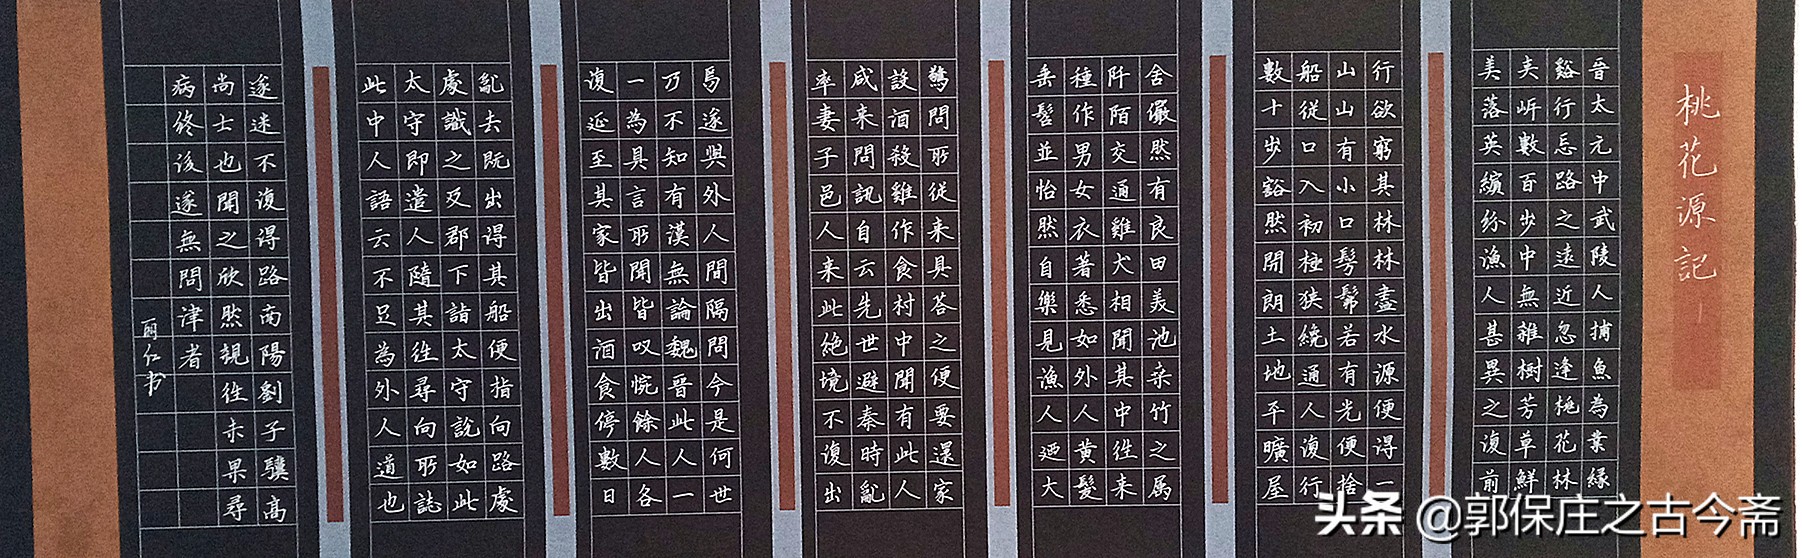 桃花源記
晉太元中武陵人捕魚為業緣
谿行忘路之遠近忽逢桃花林
夾岸數百步中無雜樹芳草鮮
美落英繽紛漁人甚異之復前
行欲窮其林林盡水源便得一
山山有小口髣髴若有光便捨
船從口入初極狹纔通人復行
數十步豁然開朗土地平曠屋
舍儼然有良田美池桑竹之属
阡陌交通雞犬相聞其中往来
種作男女衣著悉如外人黃髮
垂髫並怡然自樂見漁人迺大
驚問所從来具答之便要還家
設酒殺雞作食村中聞有此人
咸来問訊自云先世避秦時亂
率妻子邑人来此絶境不復出
焉遂與外人間隔問今是何世
乃不知有漢無論魏晉此人一
一為具言所聞皆叹惋餘人各
復延至其家皆出酒食停數日
亂去既出得其船便指向路處
處識之及郡下詣太守說如此
太守即遣人隨其往尋向所誌
此中人語云不足為外人道也
遂迷不復得路南陽劉子驥高
尚士也聞之欣然規往未果尋
病終後遂無問津者
丽仁书
头条 @郭保庄之古今斋